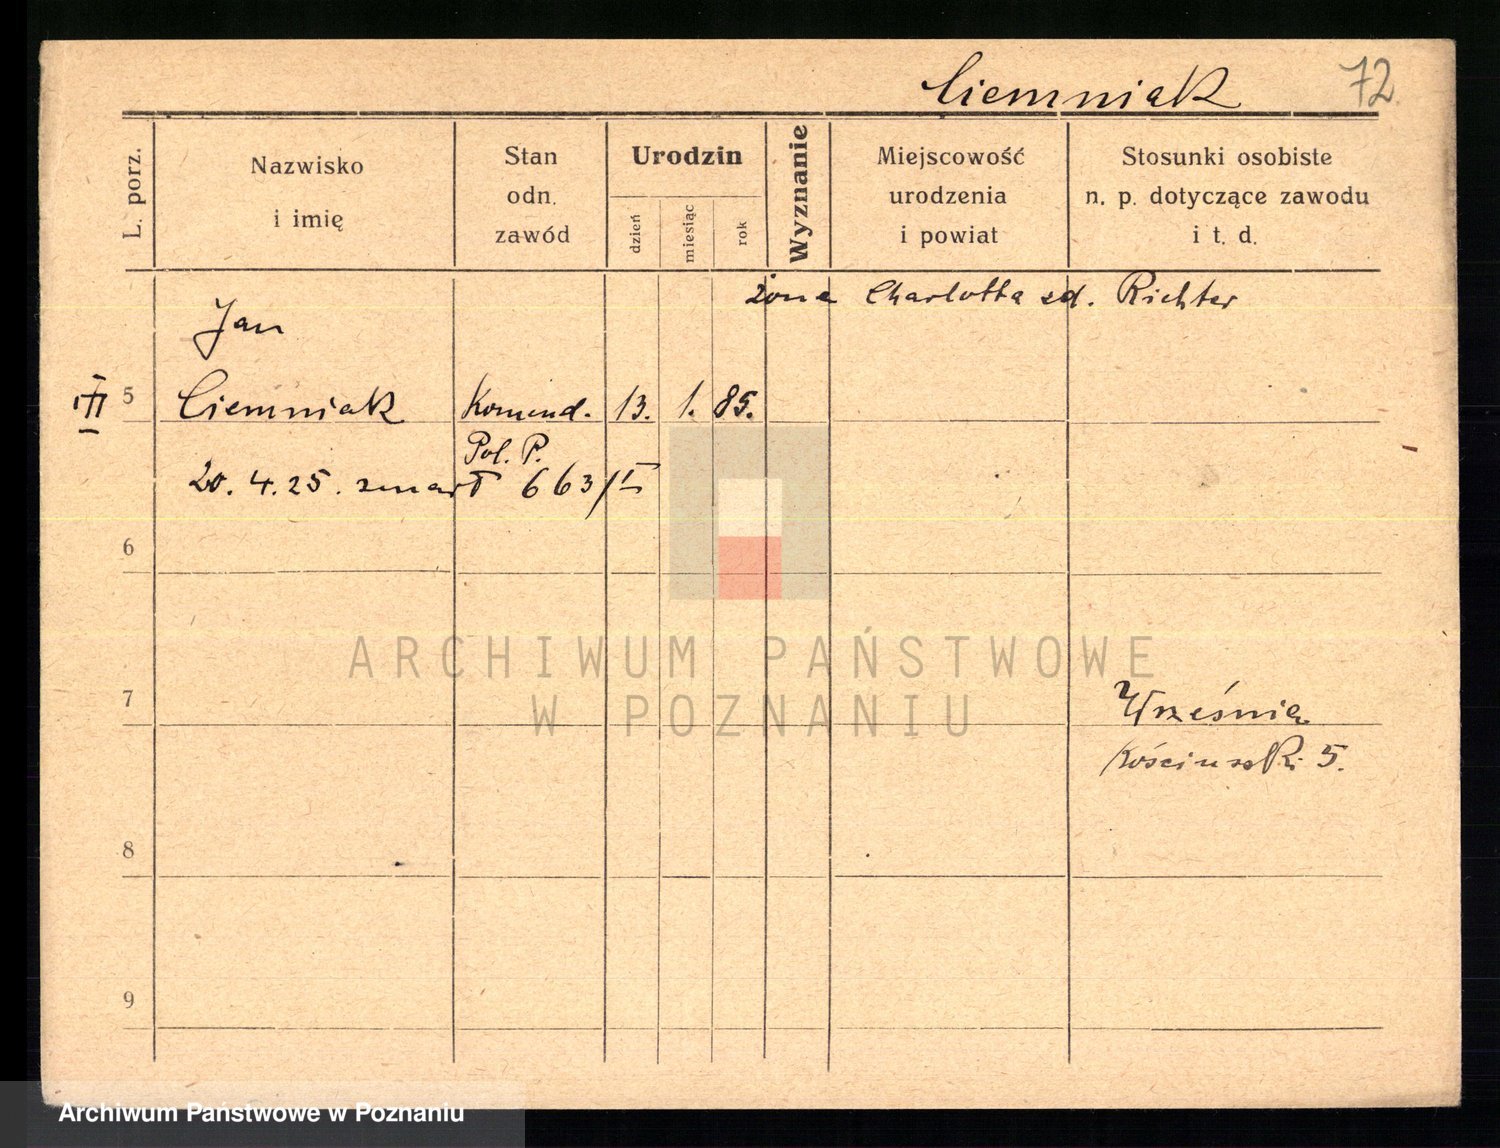 Ciemniak 72
L. porz.
Nazwisko
i imię
Stan
odn.
zawód
Urodzin
dzień
miesiąc
rok
Wyznanie
Miejscowość
urodzenia
i powiat
Stosunki osobiste
n. p. dotyczące zawodu
i t. d.
żona Charlotta zd. Richter
Jan
5 Ciemniak Komend. 13. 1. 85.
Pol. P.
20. 4. 25. zmarł 663/I
6
ARCHIWUM PAŃSTWOWE
W POZNANIU
7 Września
Kościuszki 5.
8
9
Archiwum Państwowe w Poznaniu